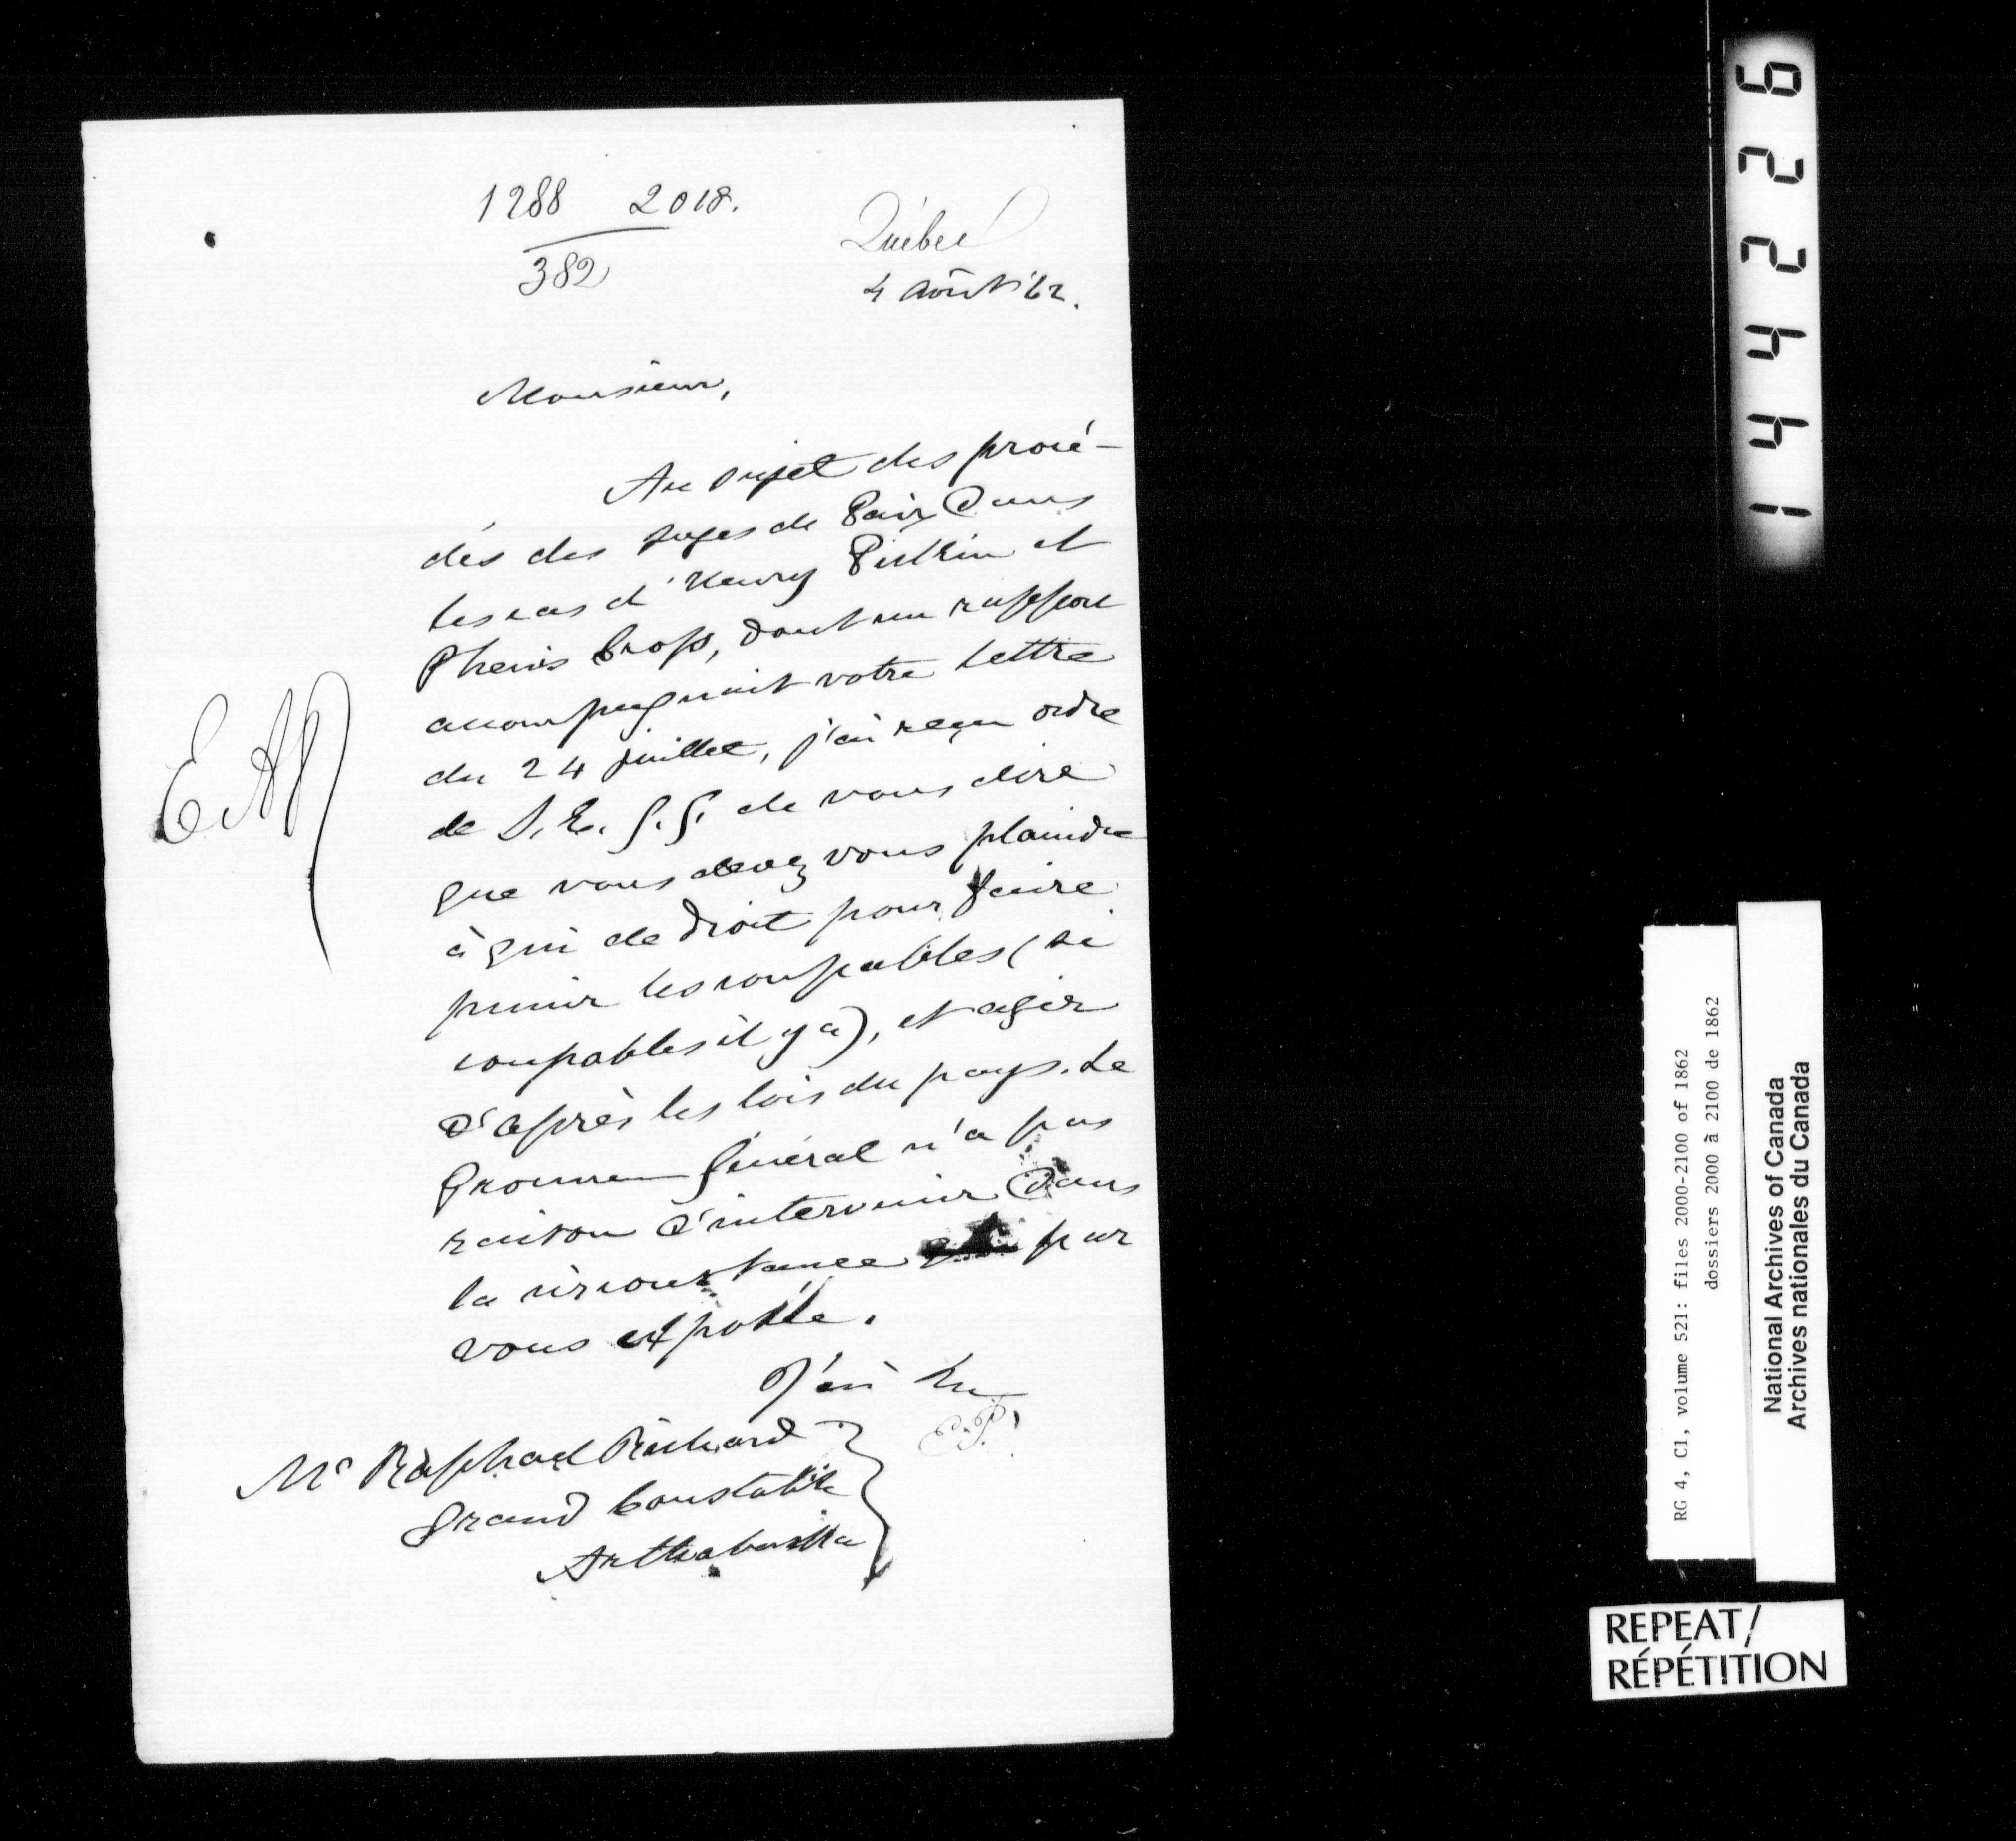 1288 2018.
382
Québec
4 Août '62.
Monsieur,
Au sujet des procé-
dés des juges de Paix dans
les cas d'Henry et
Phenis Cross, dont un rapport
accompagnait votre lettre
du 24 juillet, j'ai reçu ordre
de S. E. G. G. de vous dire
que vous devez vous plaindre
à qui de droit pour faire
punir les coupables (si
coupables il y a), et agir
d'après les lois du pays. Le
Gouverneur Général n'a pas
raison d'intervenir dans
la circonstance par
vous exposée.
J'ai
E.P.
Mr Raphael Richard
Grand Constable
Arthabaska
1 4 4 2 2 6
RG 4, C1, volume 521: files 2000-2100 of 1862
dossiers 2000 à 2100 de 1862
National Archives of Canada
Archives nationales du Canada
REPEAT/
RÉPÉTITION